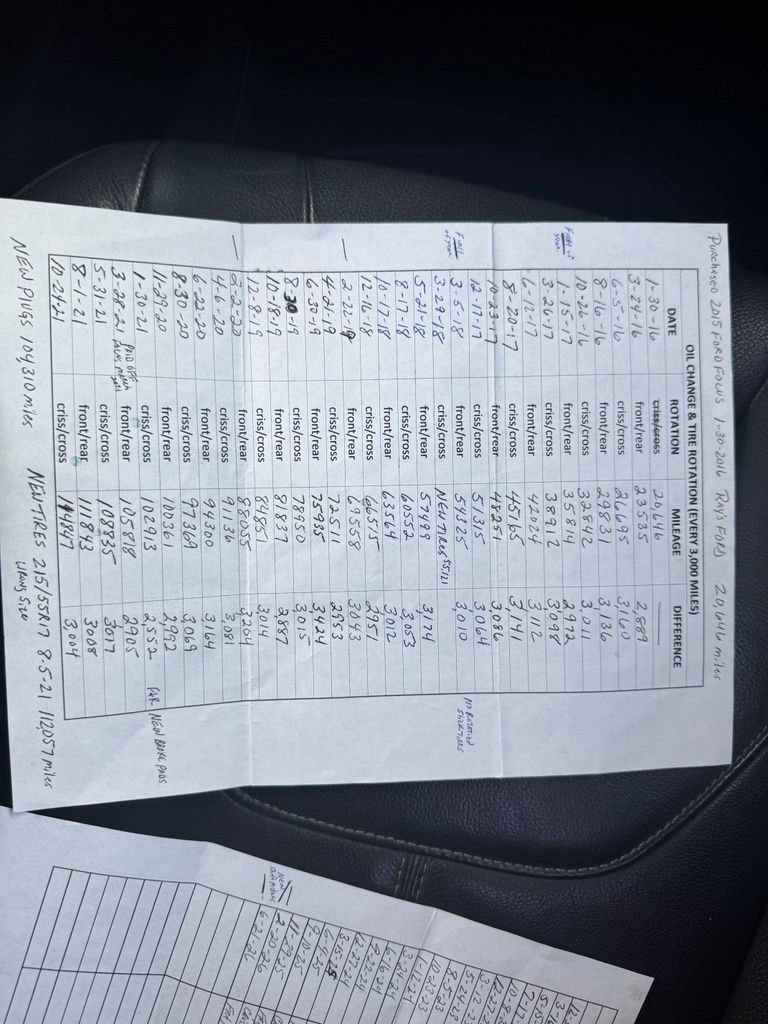 Purchased 2015 FORD FOCUS 1-30-2016 RAY'S FORD 20,646 miles
OIL CHANGE & TIRE ROTATION (EVERY 3,000 MILES)
DATE ROTATION MILEAGE DIFFERENCE
1-30-16 criss/cross 20,646
3-24-16 front/rear 23535 2,889
6-5-16 criss/cross 26695 3,160
8-16-16 front/rear 29831 3,136
10-26-16 criss/cross 32842 3,011
First yr year 1-15-17 front/rear 35814 2,972
3-26-17 criss/cross 38912 3,098
6-12-17 front/rear 42024 3,112
8-20-17 criss/cross 45165 3,141
10-23-17 front/rear 48251 3,086
12-17-17 criss/cross 51315 3,064
3-5-18 front/rear 54325 3,010 NO ROTATION SLICK TIRES
3-29-18 NEW TIRES
5-21-18 front/rear 57499 3,174
8-17-18 criss/cross 60552 3,053
10-17-18 front/rear 63564 3,012
12-16-18 criss/cross 66515 2951
2-22-19 front/rear 69558 3,043
4-21-19 criss/cross 72511 2953
6-30-19 front/rear 75935 3,424
8-30-19 criss/cross 78950 3,015
10-18-19 front/rear 81837 2,887
12-8-19 criss/cross 84851 3,014
2-2-20 front/rear 88055 3,204
4-6-20 criss/cross 91136 3,081
6-22-20 front/rear 94300 3,164
8-31-20 criss/cross 97369 3,069
11-29-20 front/rear 100361 2,992
1-30-21 criss/cross 102913 2,552 F&R NEW BRAKE PADS
3-28-21 PAID OFF front/rear 105818 2905
5-31-21 criss/cross 108835 3017
8-1-21 front/rear 111843 3008
10-24-21 criss/cross 114847 3,004
NEW PLUGS 104,310 miles NEW TIRES 215/55R17 8-5-21 112,057 miles
WRONG SIZE
5-04-23
8-5-23
10-23-23
1-17-24
3-24-24
6-16-24
9-22-24
12-27-24
9-10-25
11-29-25
2-20-26
6-21-26